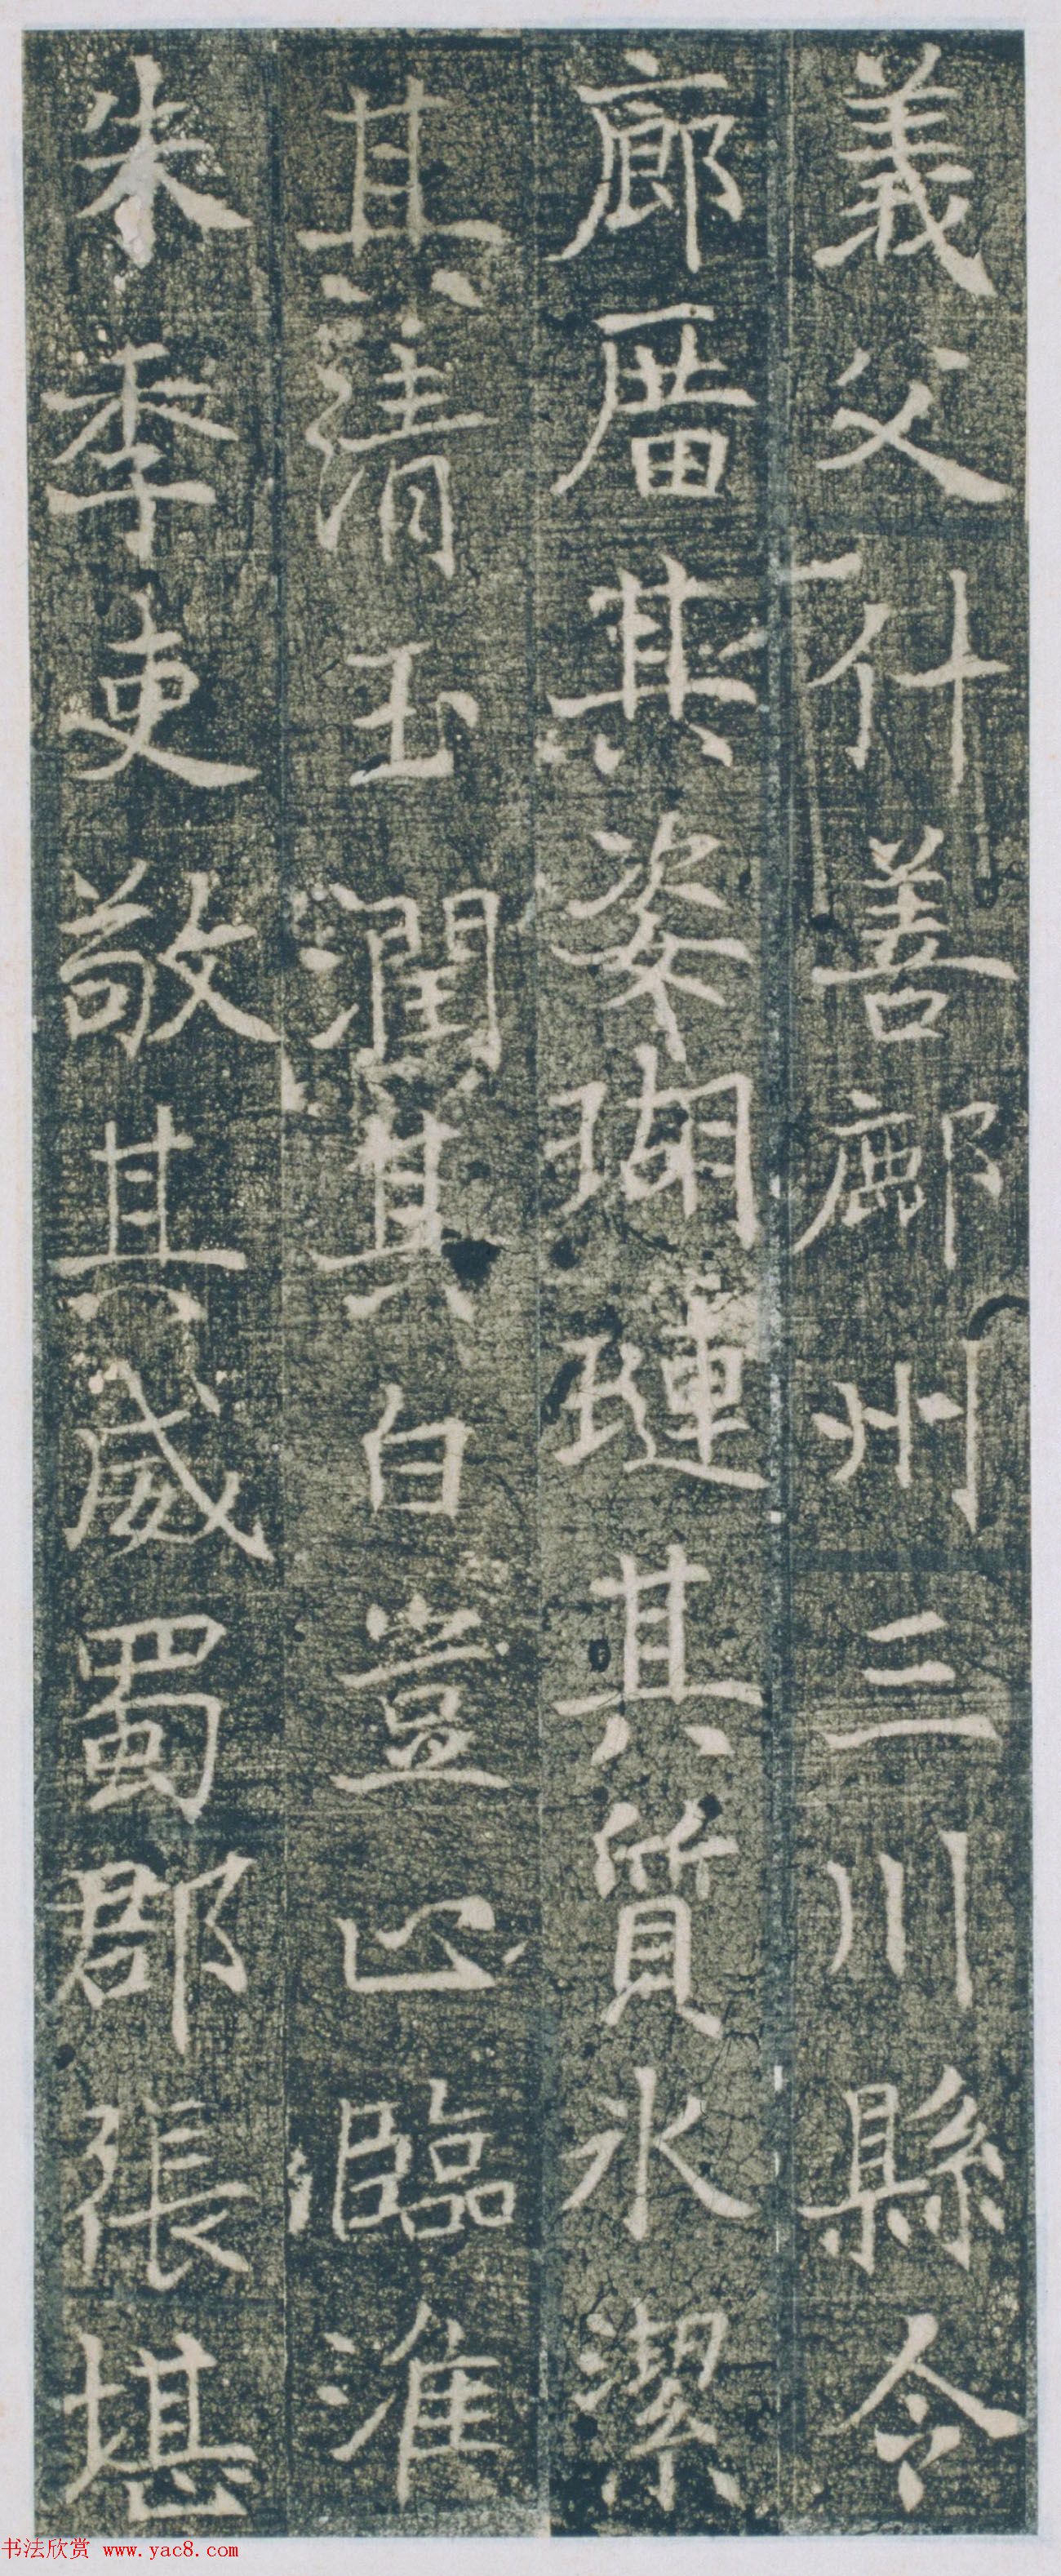 義父什善鄜州三川縣令
廊廟其姿瑚璉其質水潔
其清玉潤其白豈止臨淮
朱季吏敬其威蜀郡張堪
书法欣赏 www.yac8.com